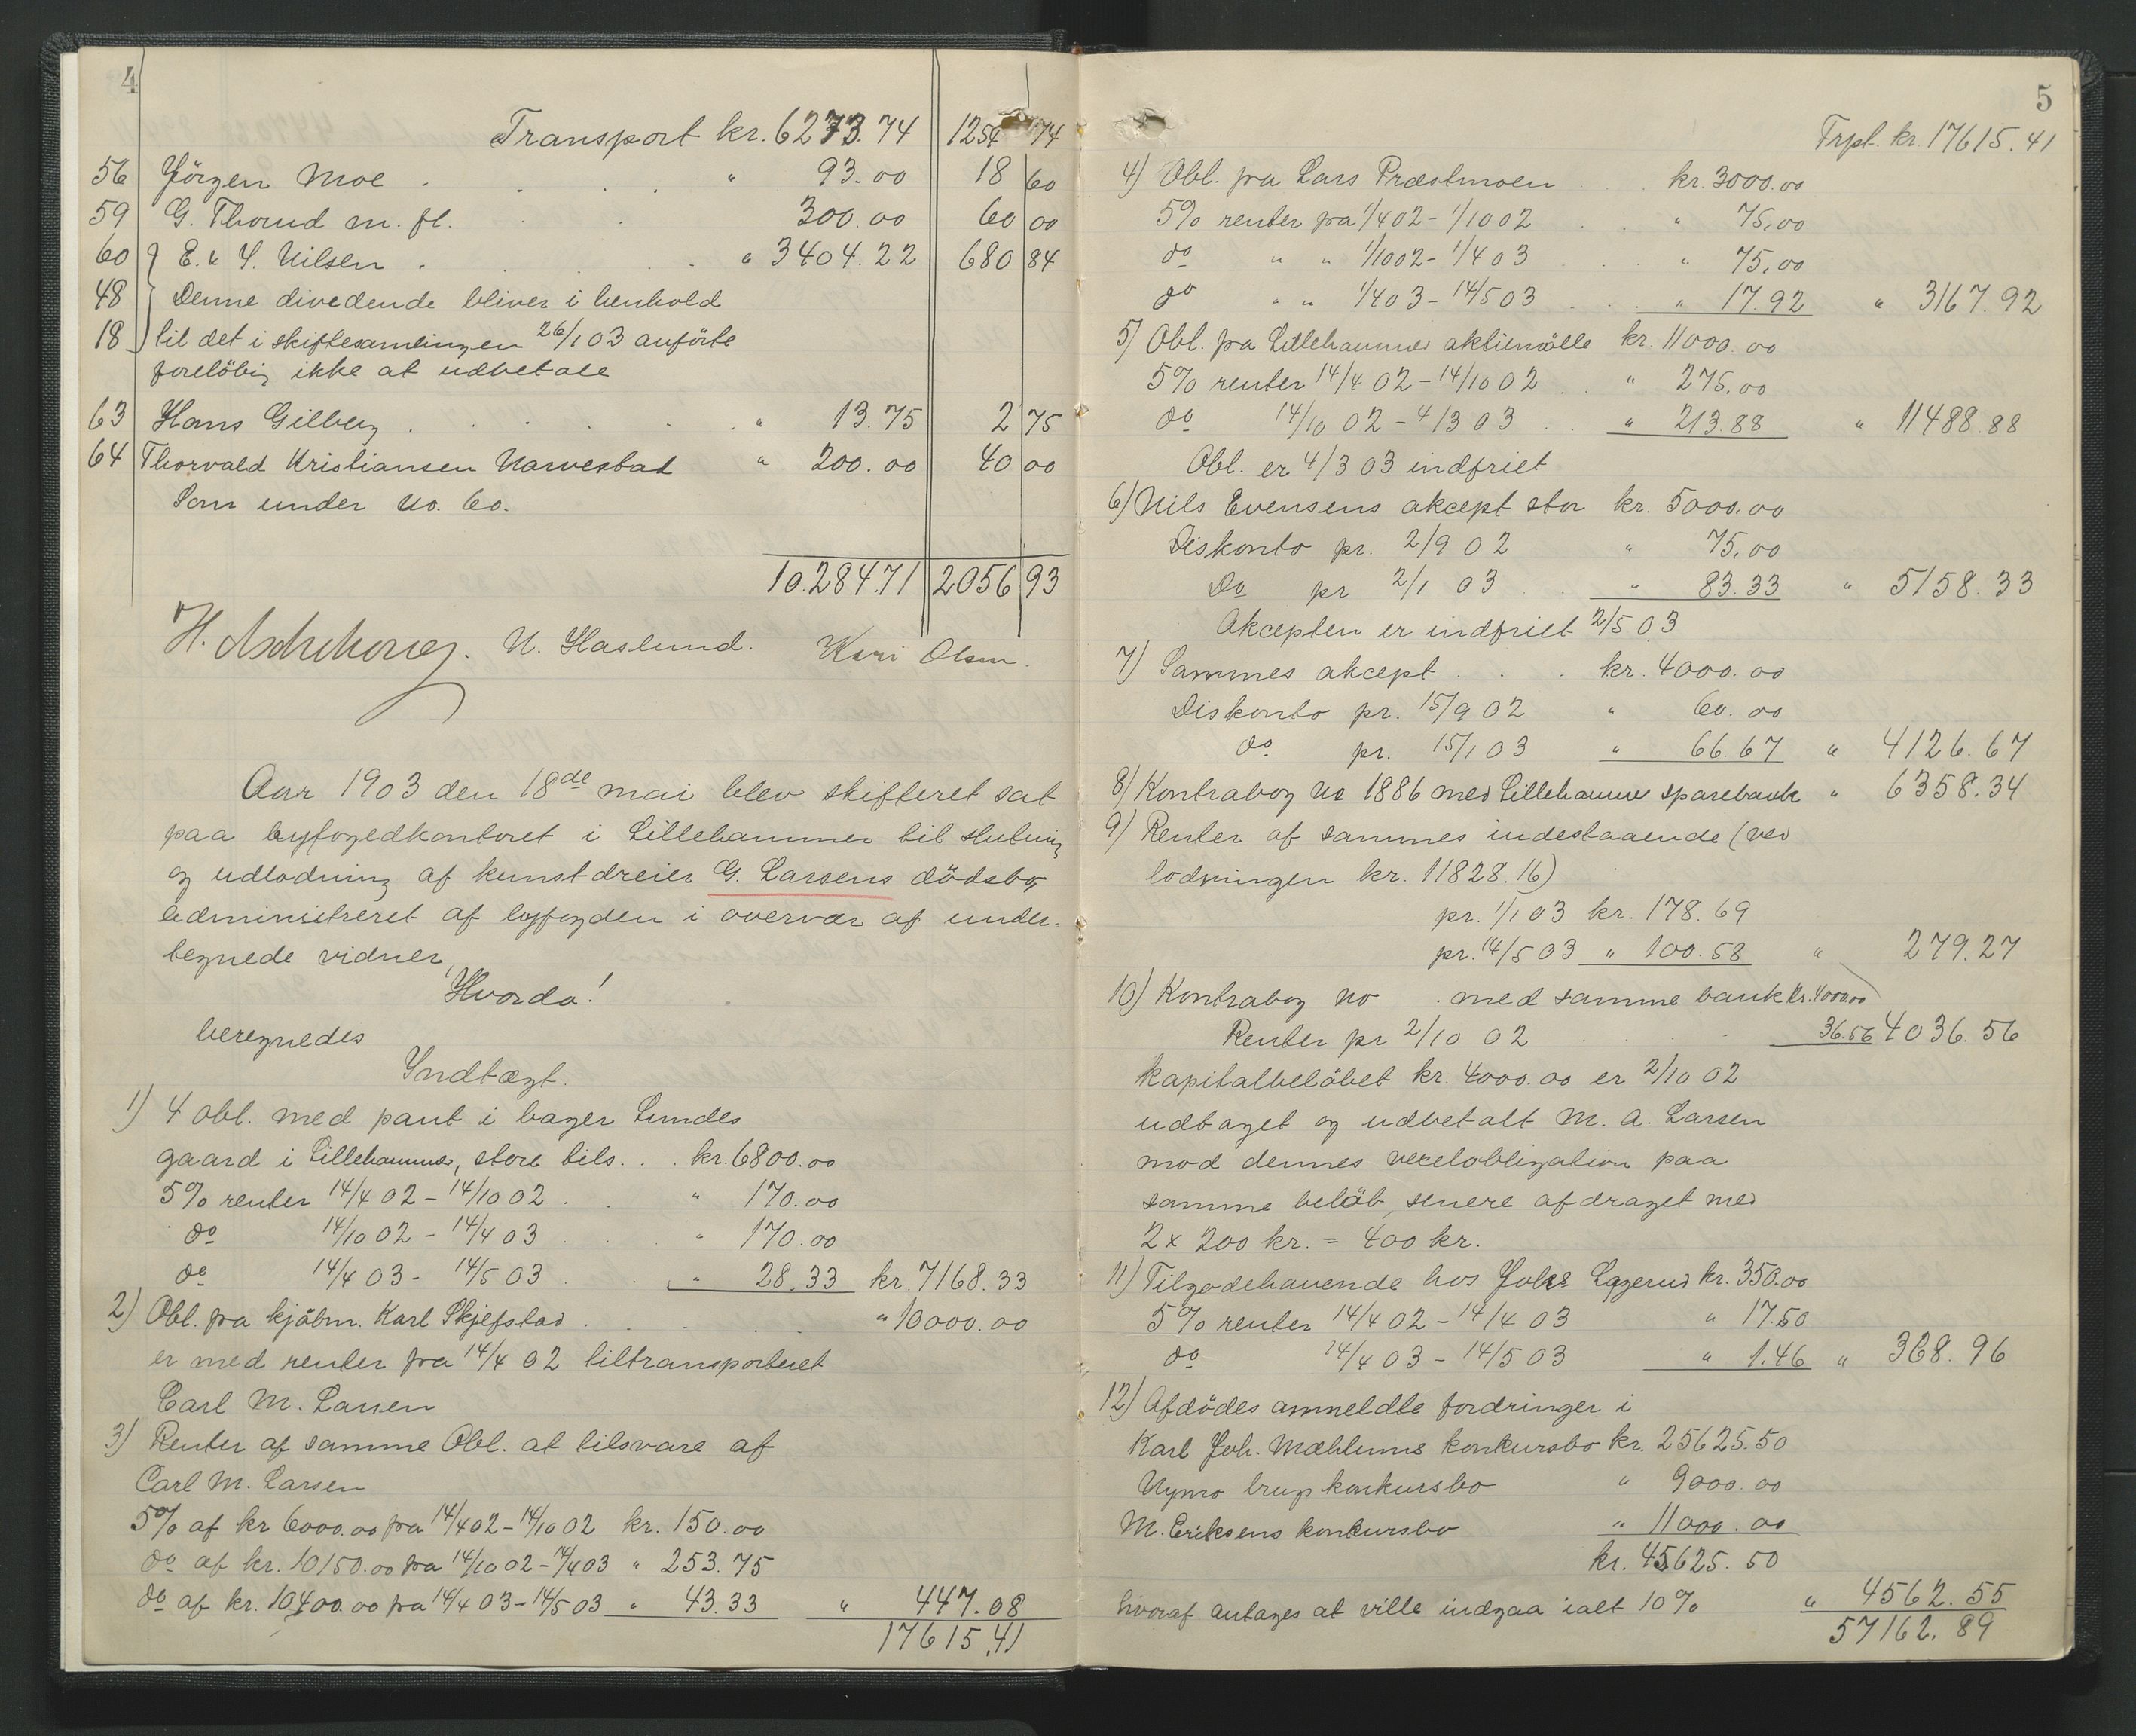 4
Transport kr. 6273.74 1254 74
56 Jörgen Moe . . . . " 93.00 18 60
59 G. Thorud m. fl. . . 300.00 60 00
60 E. & S. Nilsen . . . . " 3404.22 680 84
48 Denne divedende bliver i henhold
18 til det i skiftesamlingen 26/1 03 anförte
foreløbig ikke at udbetale
63 Hans Gilberg . . . . . " 13.75 2 75
64 Thorvald Kristiansen Narvestad " 200.00 40 00
Som under No. 60.
10.284.71 2056 93
H. Aschehoug. N. Haslund. Kari Olsen.
Aar 1903 den 18de mai blev skifteret sat
paa byfogedkontoret i Lillehammer til slutning
og udlodning af kunstdreier G. Larsens dödsbo,
administreret af byfogden i overvær af under-
tegnede vidner,
Hvorda!
beregnedes
Indtægt.
1) 4 obl. med pant i bager Lundes
gaard i Lillehammer, store tils. . . kr. 6800.00
5% renter 14/4 02 - 14/10 02 . . " 170.00
do 14/10 02 - 14/4 03 . . " 170.00
do 14/4 03 - 14/5 03 . . " 28.33 kr. 7168.33
2) Obl. fra kjöbm. Karl Skjefstad . . . . " 10000.00
er med renter fra 14/4 02 tiltransporteret
Carl M. Larsen
3) Renter af samme Obl. at tilsvare af
Carl M. Larsen
5% af kr 6000.00 fra 14/4 02 - 14/10 02 kr. 150.00
do af kr. 10150.00 fra 14/10 02 - 14/4 03 " 253.75
do af kr. 10400.00 fra 14/4 03 - 14/5 03 " 43.33 " 447.08
17615.41
5
Trpt. kr. 17615.41
4) Obl. fra Lars Præstmoen . . kr. 3000.00
5% renter fra 1/4 02 - 1/10 02 . . " 75.00
do " " 1/10 02 - 1/4 03 . . " 75.00
do " " 1/4 03 - 14/5 03 . . " 17.92 " 3167.92
5) Obl. fra Lillehammer aktiemölle kr. 11000.00
5% renter 14/4 02 - 14/10 02 . . " 275.00
do 14/10 02 - 4/3 03 . . " 213.88 " 11488.88
Obl. er 4/3 03 indfriet
6) Nils Evensens akcept stor kr. 5000.00
Diskonto pr. 2/9 02 " 75.00
Do pr 2/1 03 . . " 83.33 " 5158.33
Akcepten er indfriet 2/5 03
7) Sammes akcept . . . kr. 4000.00
Diskonto pr. 15/9 02 " 60.00
do pr. 15/1 03 " 66.67 " 4126.67
8) Kontrabog No 1886 med Lillehammer sparebank " 6358.34
9) Renter af sammes indestaaende (ved
lodningen kr. 11828.16)
pr. 1/1 03 kr. 178.69
pr. 14/5 03 " 100.58 " 279.27
10) Kontrabog No . med samme bank kr. 4000.00
Renter pr 2/10 02 . . . . 36.56 4036.56
Kapitalbelöbet kr. 4000.00 er 2/10 02
udtaget og udbetalt M. A. Larsen
mod dennes vexelobligation paa
samme belöb, senere afdraget med
2 x 200 kr. = 400 kr.
11) Tilgodehavende hos Johs Lagerud kr. 350.00
5% renter 14/4 02 - 14/4 03 " 17.50
do 14/4 03 - 14/5 03 " 1.46 " 368.96
12) Afdödes anmeldte fordringer i
Karl Joh. Mæhlums konkursbo kr. 25625.50
Nymo brugs konkursbo " 9000.00
M. Eriksens konkursbo " 11000.00
kr. 45625.50
hvoraf antages at ville indgaa ialt 10% " 4562.55
57162.89